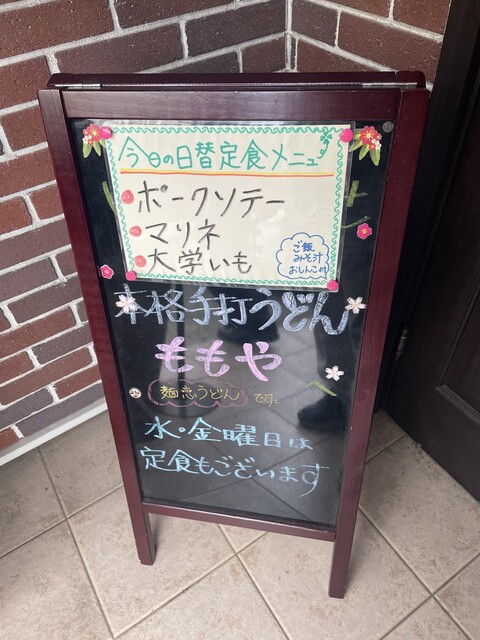 今日の日替定食メニュー
ポークソテー
マリネ
大学いも
ご飯
みそ汁
おしんこ付
本格手打うどん
ももや
麺恋うどん です
水・金曜日は
定食もございます